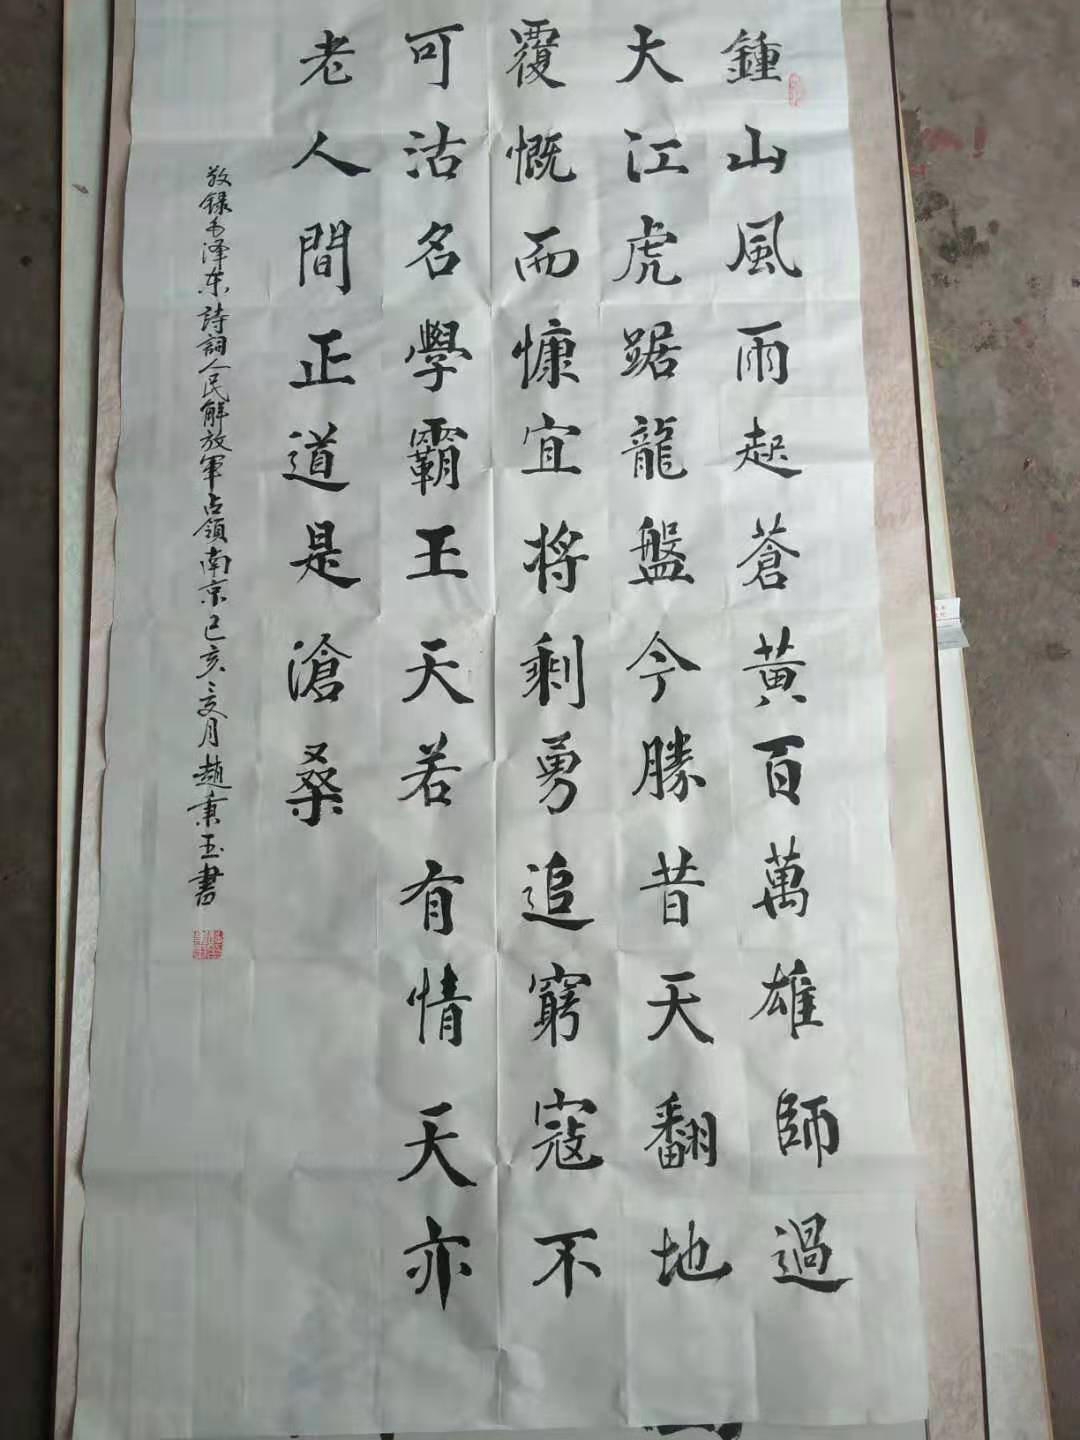 鍾山風雨起蒼黃百萬雄師過
大江虎踞龍盤今勝昔天翻地
覆慨而慷宜將剩勇追窮寇不
可沽名學霸王天若有情天亦
老人間正道是滄桑
敬錄毛泽东詩詞人民解放軍占領南京己亥之夏月趙秉玉書